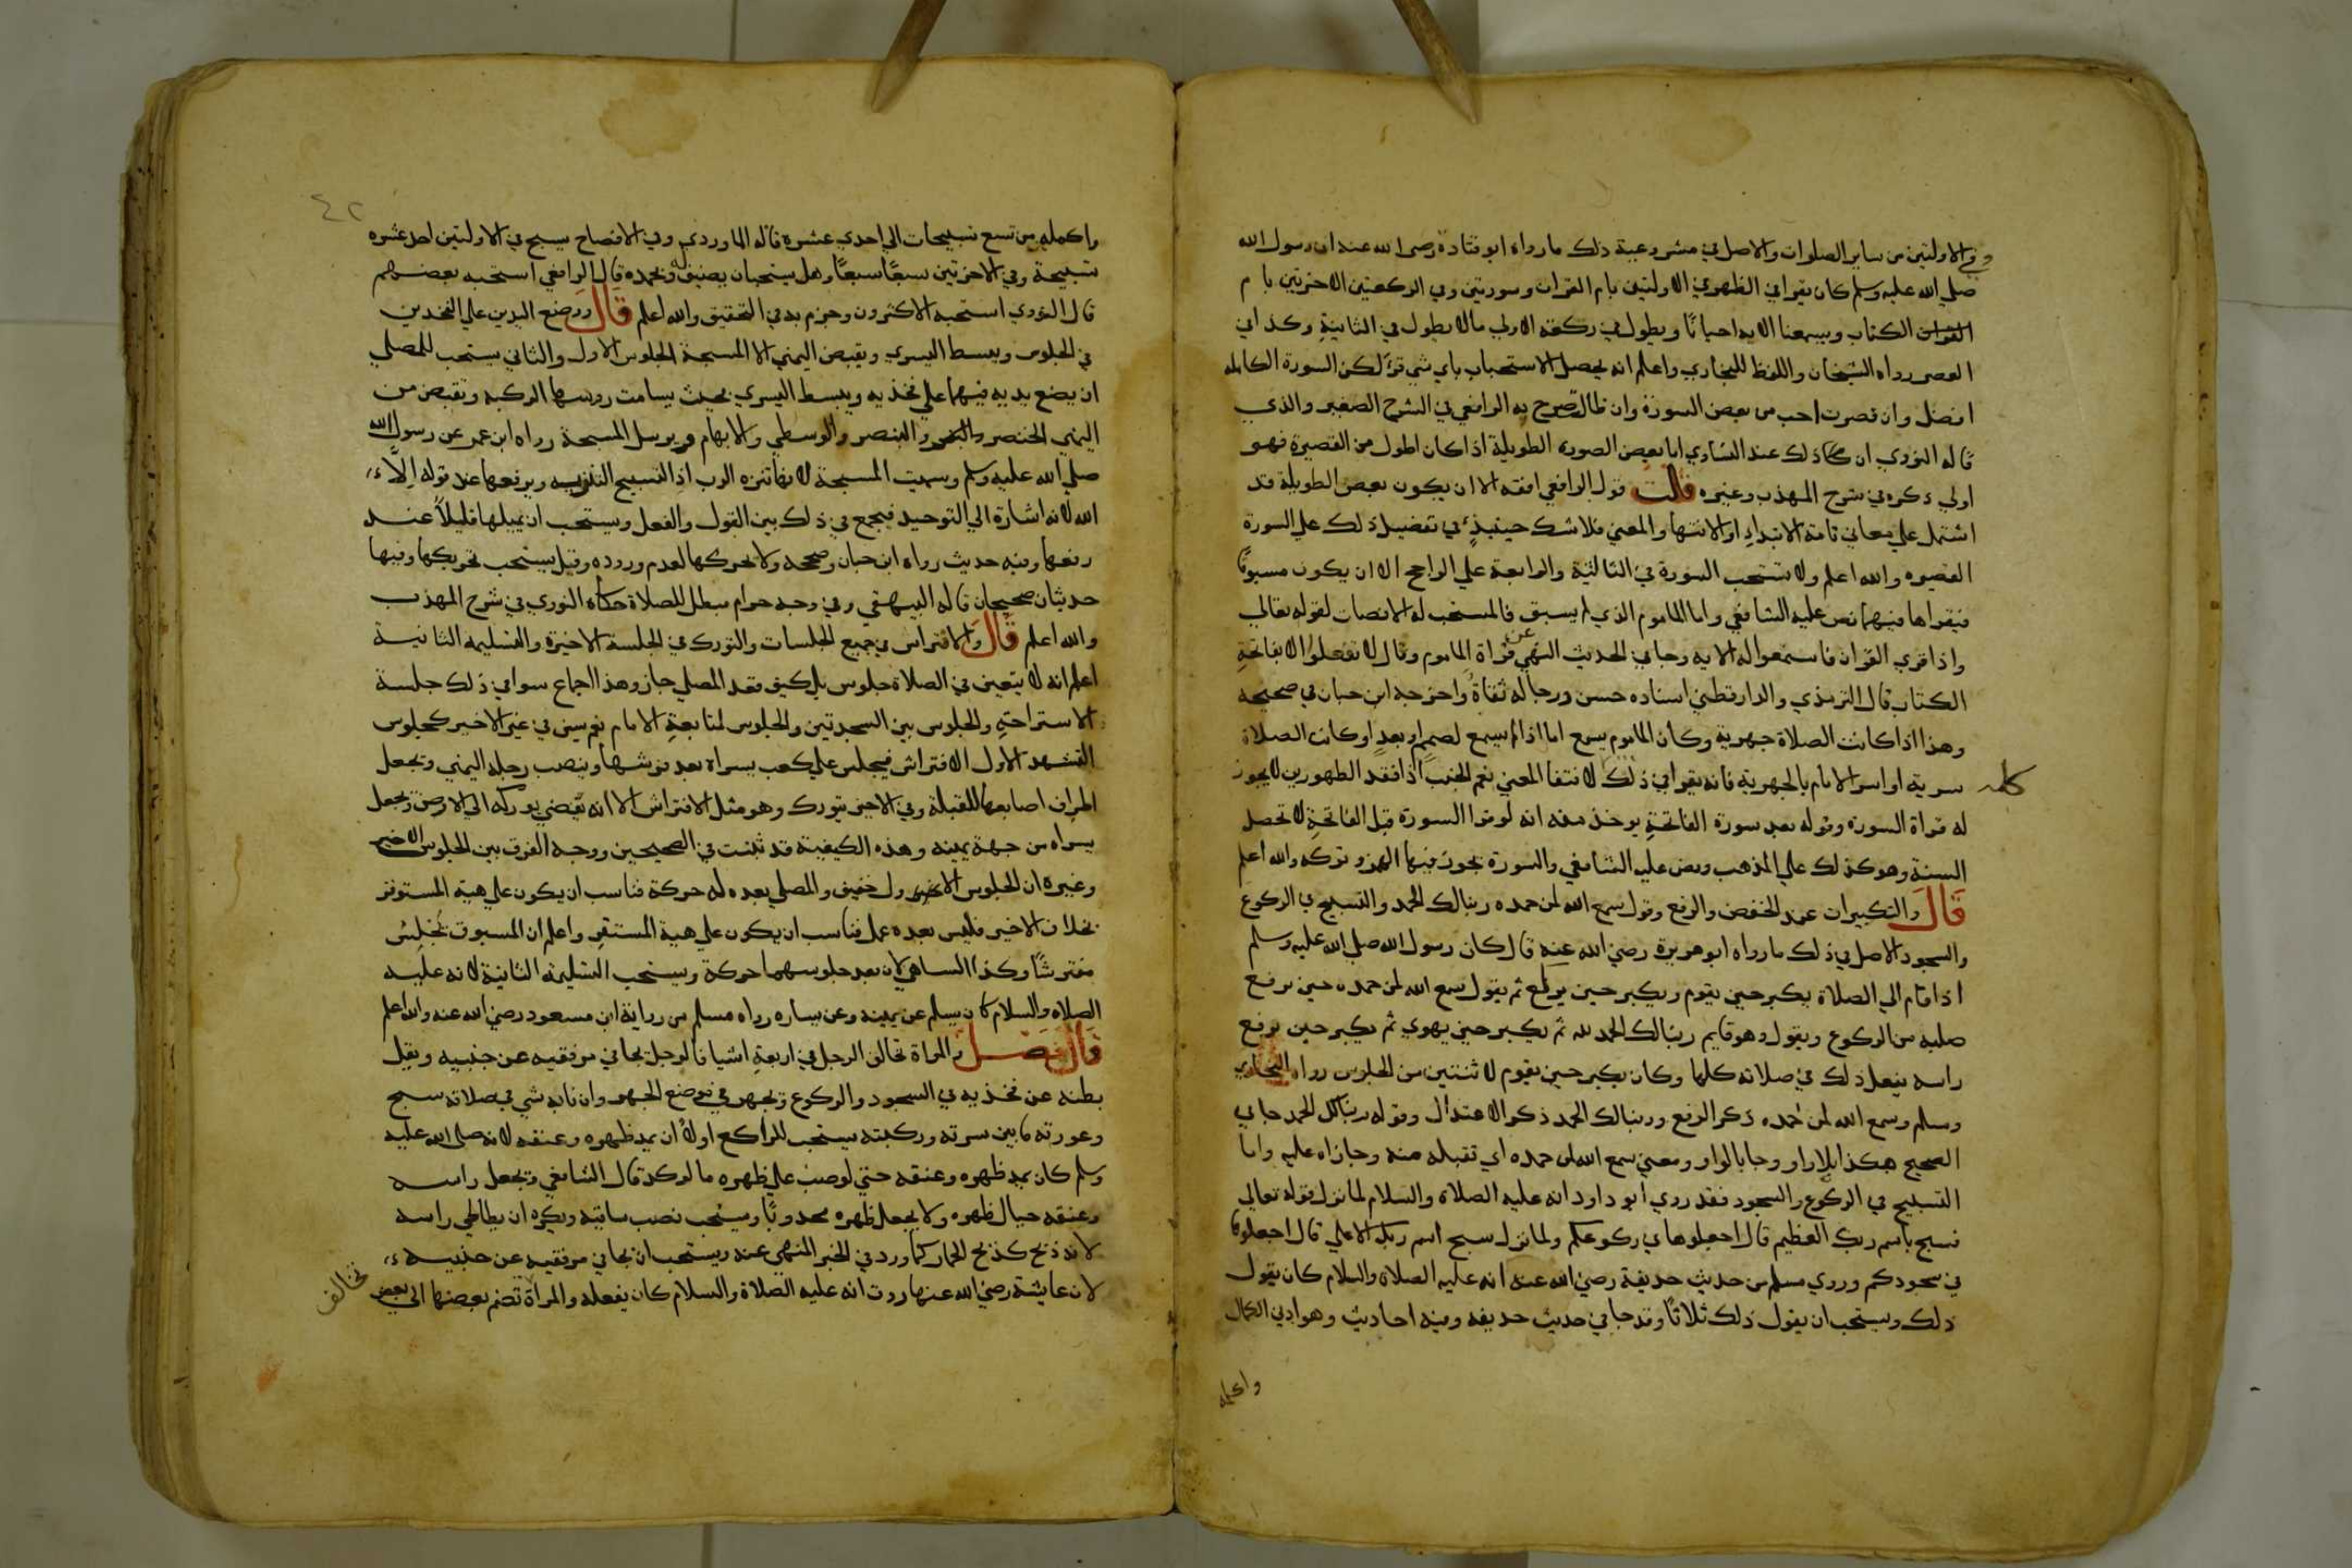 والاولتين من ساير الصلوات والاصل في مشروعية ذلك ما رواه ابو قتادة رضي الله عنه ان رسول الله
صلي الله عليه وسلم كان يقرا في الظهر في الاولتين بام القران وسورتين وفي الركعتين الاخرتين بام
الكتاب ويسمعنا الايه احيانًا ويطول في ركعته الاولي مالا يطول في الثانية وكذا في
العصر رواه الشيخان واللفظ للبخاري واعلم انه يحصل الاستحباب باي شي قرا لكن السورة الكامله
افضل وان قصرت احب من بعض السورة وان طالت صرح به الرافعي في الشرح الصغير والذي
قاله النووي ان ذلك عند التساوي اما بعض الصورة الطويلة اذا كان اطول من القصيرة فهو
اولي ذكره في شرح المهذب وغيره قلت قول الرافعي افقه الا ان يكون بعض الطويلة قد
اشتمل علي معاني تامة الابتداء او الانتها والمعني فلا شك حينيذٍ في تفضيل ذلك علي السورة
القصيره والله اعلم ولا تستحب السورة في الثالثة والرابعة علي الراجح الا ان يكون مسبوقًا
فيقراها فيهما نص عليه الشافعي واما الماموم الذي لم يسبق فالمستحب له الانصات لقوله تعالي
واذا قري القران فاستمعوا له الايه وجا في الحديث النهي عن قراة الماموم وقال لا تفعلوا الا بفاتحة
الكتاب قال الترمذي والدارقطني اسناده حسن ورجاله ثقاة واخرجه ابن حبان في صحيحه
وهذا اذا كانت الصلاة جهرية وكان الماموم يسمع اما اذا لم يسمع لصمم او بعدٍ او كانت الصلاة
سرية او اسر الامام بالجهرية فانه يقرا في ذلك لانتفا المعني نعم الجنب اذا فقد الطهورين لا يجوز
له قراة السورة وقوله بعد سورة الفاتحة يوخذ منه انه لو قرا السورة قبل الفاتحة لا تحصل
السنة وهو كذلك علي المذهب ونص عليه الشافعي والسورة يجوز فيها الهمز وتركه والله اعلم
قال والتكبيرات عند الخفض والرفع وقول سمع الله لمن حمده ربنا لك الحمد والتسبيح في الركوع
والسجود الاصل في ذلك ما رواه ابو هريرة رضي الله عنه قال كان رسول الله صلي الله عليه وسلم
اذا قام الي الصلاة يكبر حين يقوم ويكبر حين يركع ثم يقول سمع الله لمن حمده حين يرفع
صلبه من الركوع ويقول وهو قايم ربنا لك الحمد ثم يكبر حين يهوي ثم يكبر حين يرفع
راسه يفعل ذلك في صلاته كلها وكان يكبر حين يقوم لاثنتين من الجلوس رواه البخاري
ومسلم وسمع الله لمن حمده ذكر الرفع وربنا لك الحمد ذكر الاعتدال وقوله ربنا لك الحمد جا في
الصحيح هكذا بلا واو وجا بالواو ومعني سمع الله لمن حمده اي تقبله منه وجازاه عليه واما
التسبيح في الركوع والسجود فقد روي ابو داود انه عليه الصلاة والسلام لما نزل قوله تعالي
فسبح باسم ربك العظيم قال اجعلوها في ركوعكم ولما نزل سبح اسم ربك الاعلي قال اجعلوها
في سجودكم وروي مسلم من حديث حذيفة رضي الله عنه انه عليه الصلاة والسلام كان يقول
ذلك ويستحب ان يقول ذلك ثلاثًا وقد جا في حديث حذيفه وفيه احاديث وهو ادني الكمال
واكمله
كله
٤٢
واكمله من تسع تسبيحات الي احدي عشره قاله الماوردي وفي الافصاح يسبح في الاولتين احد عشره
تسبيحة وفي الاخرتين سبعًا سبعًا وهل يستحب ان يضيف وبحمده قال الرافعي استحبه بعضهم
قال النووي استحبه الاكثرون وجزم به في التحقيق والله اعلم قال ووضع اليدين علي الفخذين
في الجلوس ويبسط اليسري ويقبض اليمني الا المسبحة الجلوس الاول والثاني يستحب للمصلي
ان يضع يديه فيهما علي فخذيه ويبسط اليسري بحيث يسامت روسها الركبه وتقبض من
اليمني الخنصر والبنصر والوسطي والابهام ويرسل المسبحة رواه ابن عمر عن رسول الله
صلي الله عليه وسلم وسميت المسبحة لانها تنزه الرب اذ التسبيح التنزيه ويرفعها عند قوله الا
الله لانه اشارة الي التوحيد فيجمع في ذلك بين القول والفعل ويستحب ان يميلها قليلاً عند
رفعها وفيه حديث رواه ابن حبان وصححه ولا يحركها لعدم وروده وقيل يستحب تحريكها وفيها
حديثان صحيحان قاله البيهقي وفي وجه حرام مبطل للصلاة حكاه النووي في شرح المهذب
والله اعلم قال والافتراش في جميع الجلسات والتورك في الجلسة الاخيرة والتسليمه الثانية
اعلم انه لا يتعين في الصلاة جلوس بل كيف قعد المصلي جاز وهذا اجماع سوا في ذلك جلسة
الاستراحة والجلوس بين السجدتين والجلوس لمتابعة الامام نعم يسن في غير الاخير كجلوس
التشهد الاول الافتراش فيجلس علي كعب يسراه بعد فرشها وينصب رجله اليمني ويجعل
اطراف اصابعها للقبلة وفي الاخير يتورك وهو مثل الافتراش الا انه يفضي بوركه الي الارض ويجعل
يسراه من جهة يمينه وهذه الكيفية قد ثبتت في الصحيحين ووجه الفرق بين الجلوس الاخير
وغيره ان الجلوس الاول خفيف والمصلي بعده له حركة فناسب ان يكون علي هيئة المستوفز
بخلاف الاخير فليس بعده عمل فناسب ان يكون علي هيئة المستقر واعلم ان المسبوق يجلس
مفترشًا وكذا الساهي لان بعد جلوسهما حركة ويستحب التسليمة الثانية لانه عليه
الصلاه والسلام كان يسلم عن يمينه وعن يساره رواه مسلم من رواية ابن مسعود رضي الله عنه والله اعلم
قال فصل والمراة تخالف الرجل في اربعة اشيا فالرجل يجافي مرفقيه عن جنبيه ويقل
بطنه عن فخذيه في السجود والركوع ويجهر في موضع الجهر وان نابه شي في صلاته سبح
وعورته ما بين سرته وركبته يستحب للراكع اولاً ان يمد ظهره وعنقه لانه صلي الله عليه
وسلم كان يمد ظهره وعنقه حتي لو صب علي ظهره ما لركد قال الشافعي ويجعل راسه
وعنقه حيال ظهره ولا يجعل ظهره محدودبًا ويستحب نصب ساقيه ويكره ان يطاطي راسه
لانه ذبح كذبح الحمار كما ورد في الخبر المنهي عنه ويستحب ان يجافي مرفقيه عن جنبيه
لان عايشة رضي الله عنها روت انه عليه الصلاة والسلام كان يفعله والمراة تضم بعضها الي بعض
تخالف